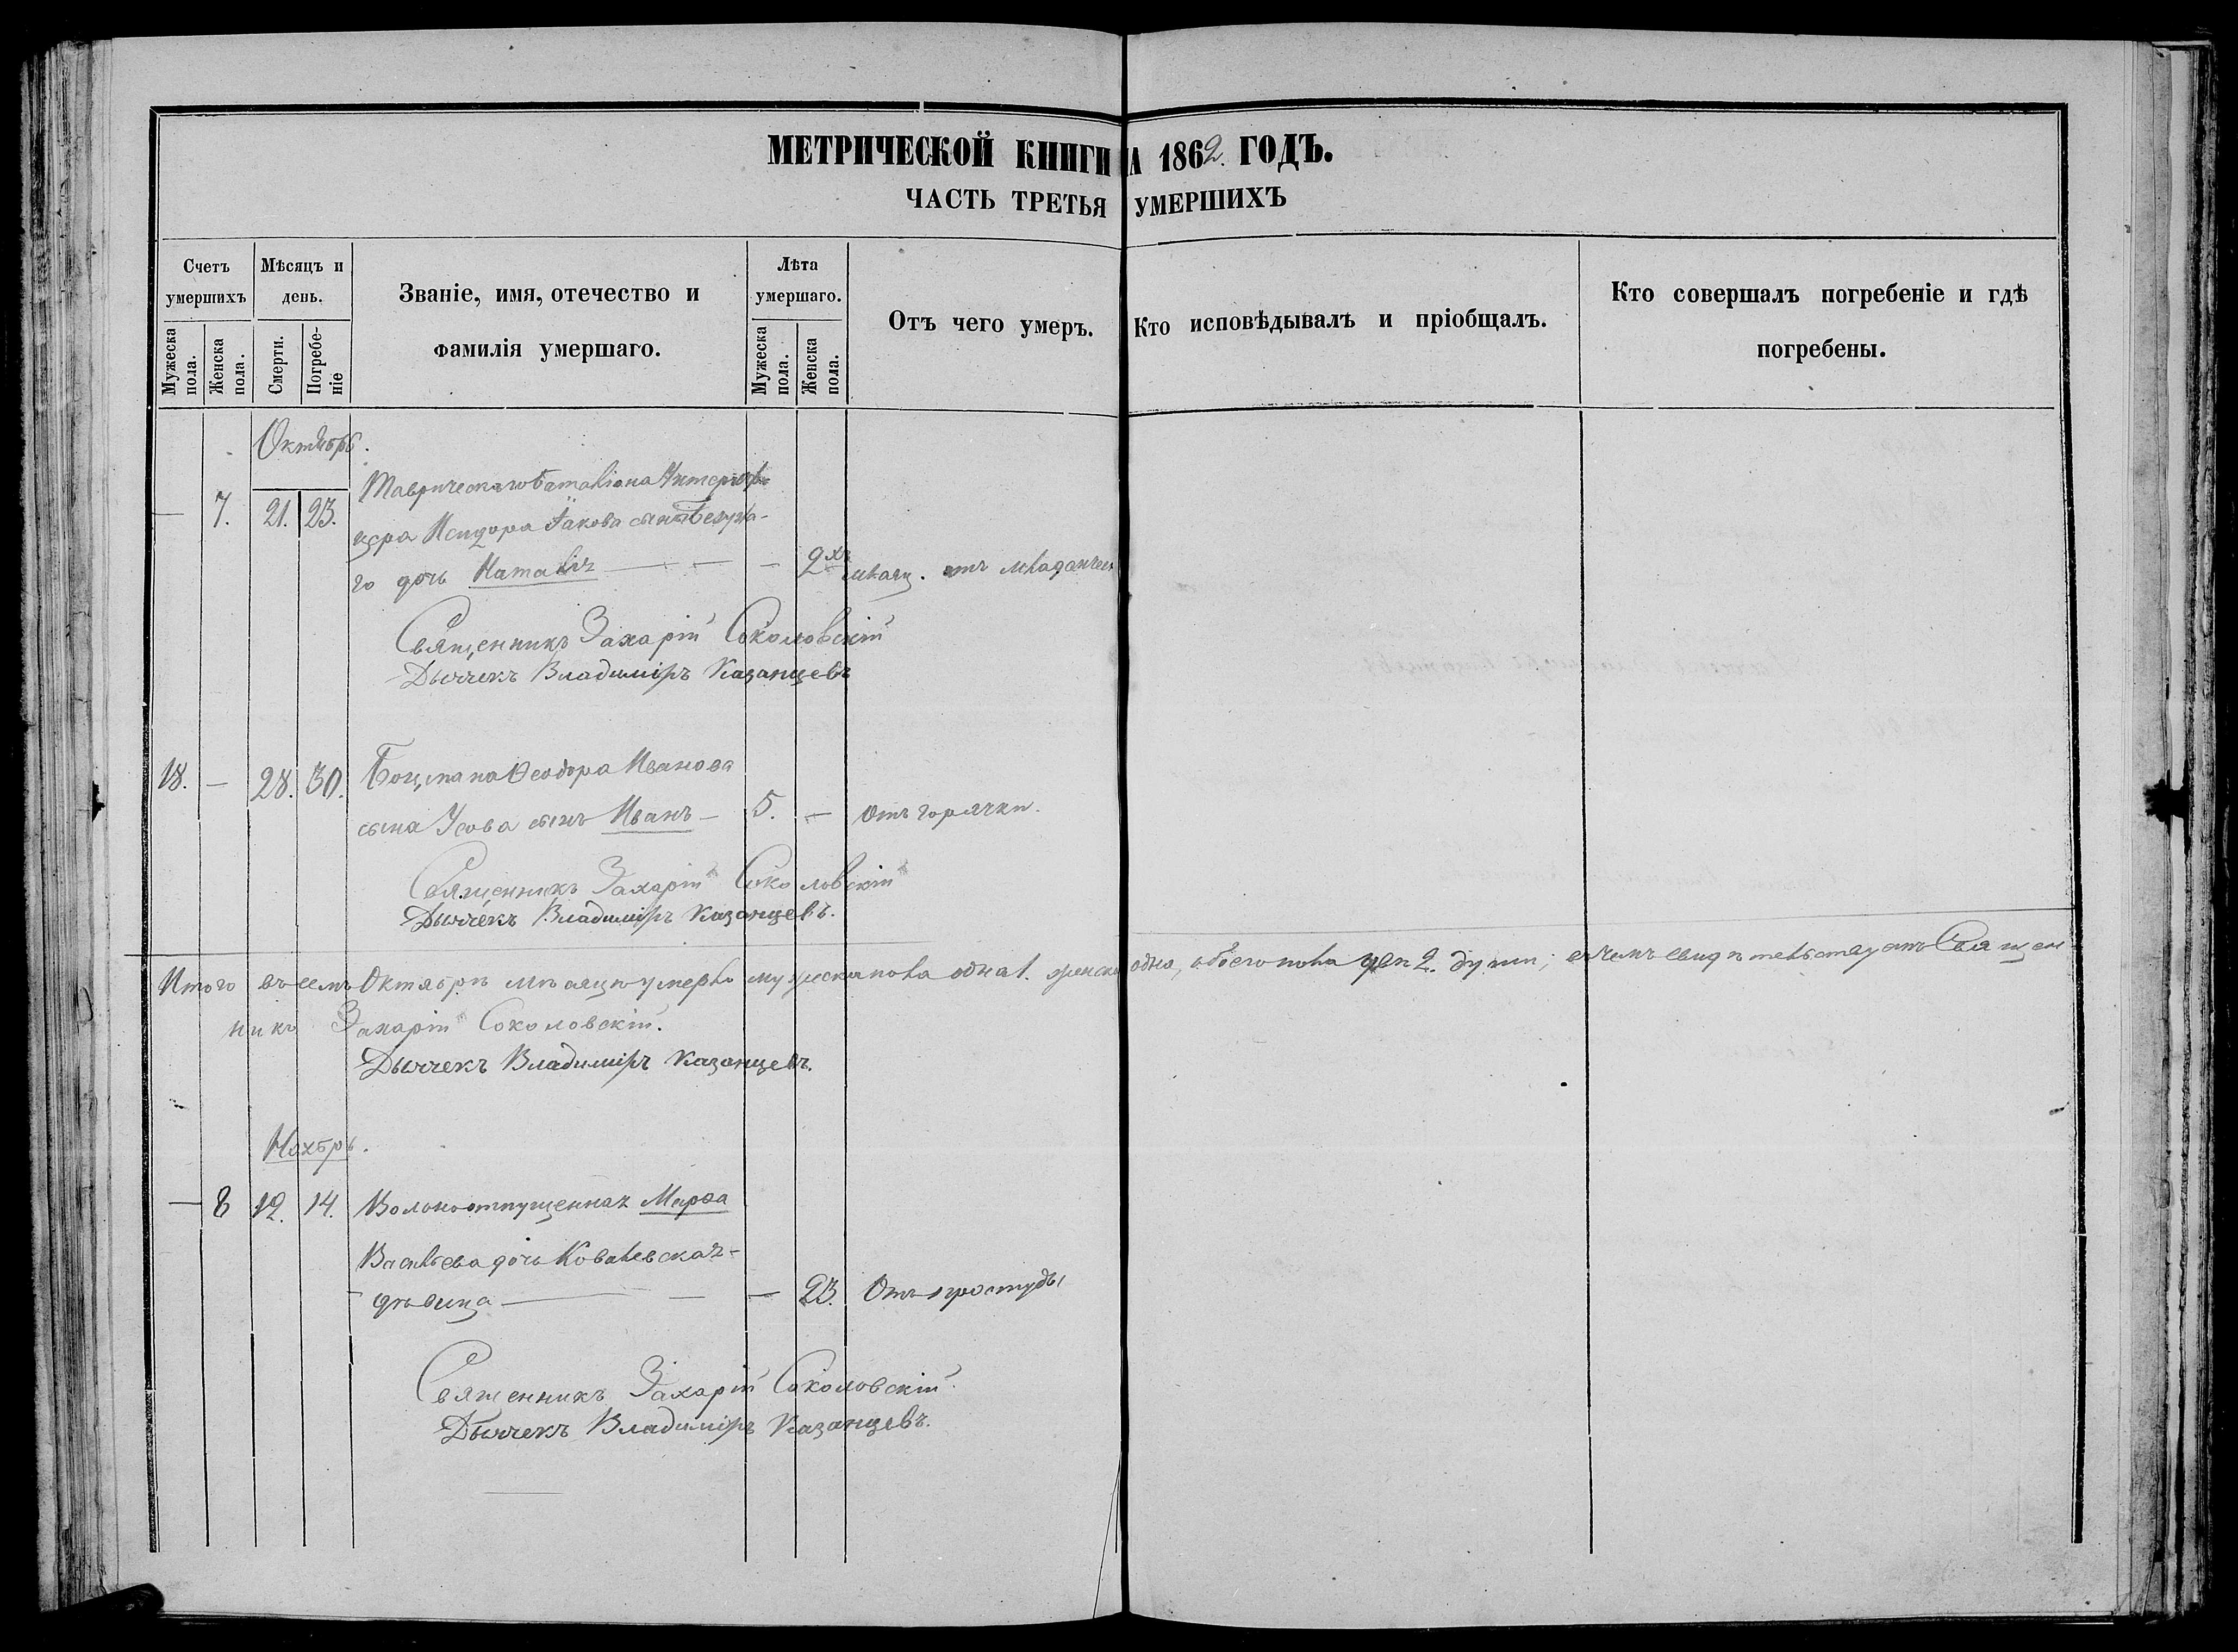 МЕТРИЧЕСКОЙ КНИГИ НА 1862. ГОДЪ.
ЧАСТЬ ТРЕТЬЯ УМЕРШИХЪ
Счетъ умершихъ
Мужеска пола.
Женска пола.
Мѣсяцъ и день.
Смерти.
Погребеніе
Званіе, имя, отечество и
фамилія умершаго.
Лѣта умершаго.
Мужеска пола.
Женска пола.
Отъ чего умеръ.
Кто исповѣдывалъ и пріобщалъ.
Кто совершалъ погребеніе и гдѣ
погребены.
Октябрь.
Таврическаго баталіона
— 7. 21. 23. цера Исидора Іакова сына
го дочь Наталія — — — 2хъ мѣсяц. отъ младенческ
Священникъ Захарій Соколовскій
Дьячекъ Владиміръ Казанцевъ
18. — 28. 30. Боцмана Ѳеодора Иванова
сына Усова сынъ Иванъ — 5. — Отъ горячки.
Священникъ Захарій Соколовскій
Дьячекъ Владиміръ Казанцевъ.
Итого въ семъ Октябрѣ мѣсяцѣ умерло мужеска пола одна 1. женска одна, обоего пола 2. души; въ чемъ свидѣтельствуетъ Священ
никъ Захарій Соколовскій.
Дьячекъ Владиміръ Казанцевъ.
Ноябрь.
— 8 12. 14. Вольноотпущенная Марѳа
Васильева дочь Ковалевская-
дѣвица — — — 23. Отъ простуды
Священникъ Захарій Соколовскій.
Дьячекъ Владиміръ Казанцевъ.